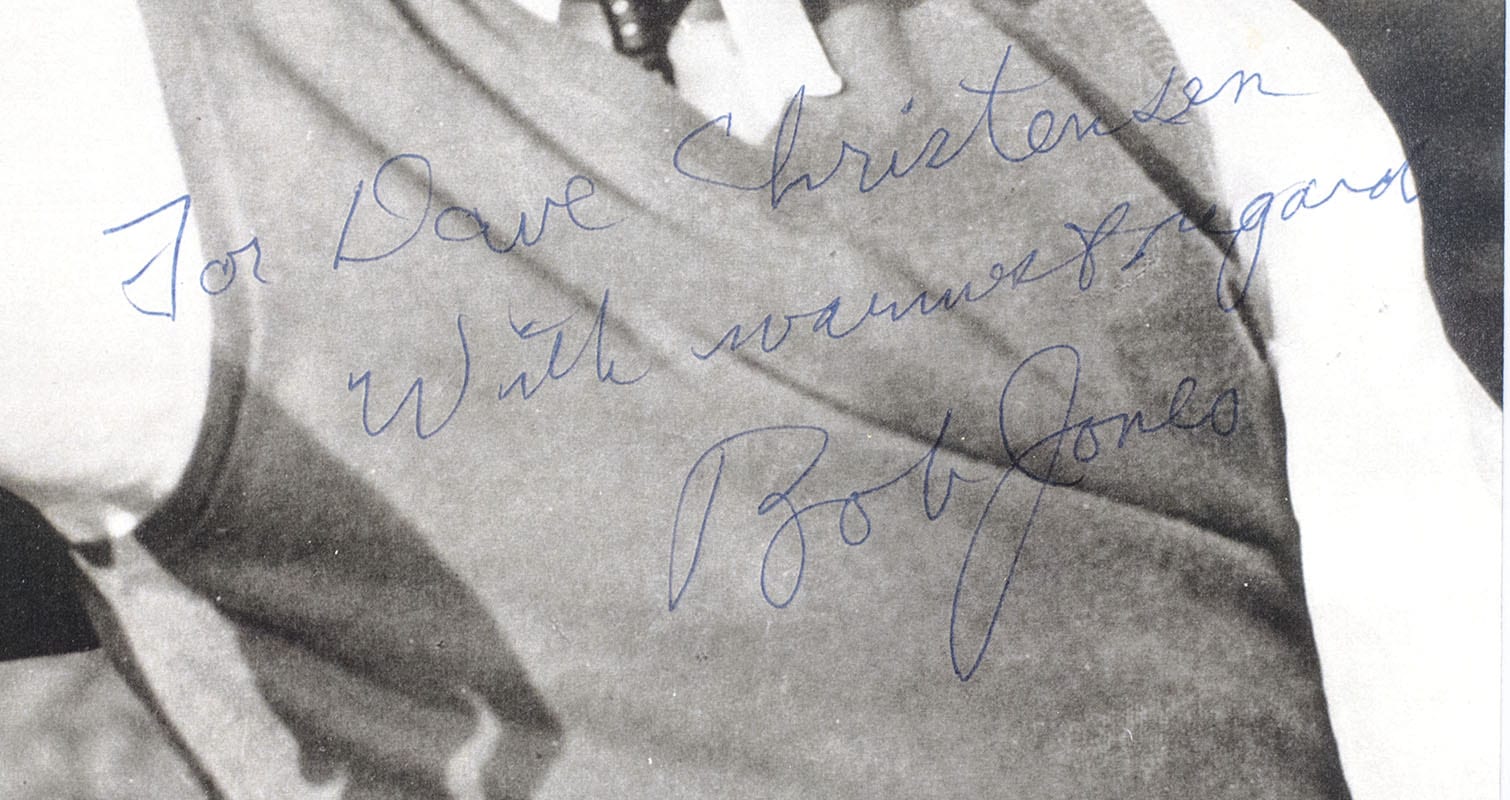 For Dave Christensen
With warmest regard
Bob Jones